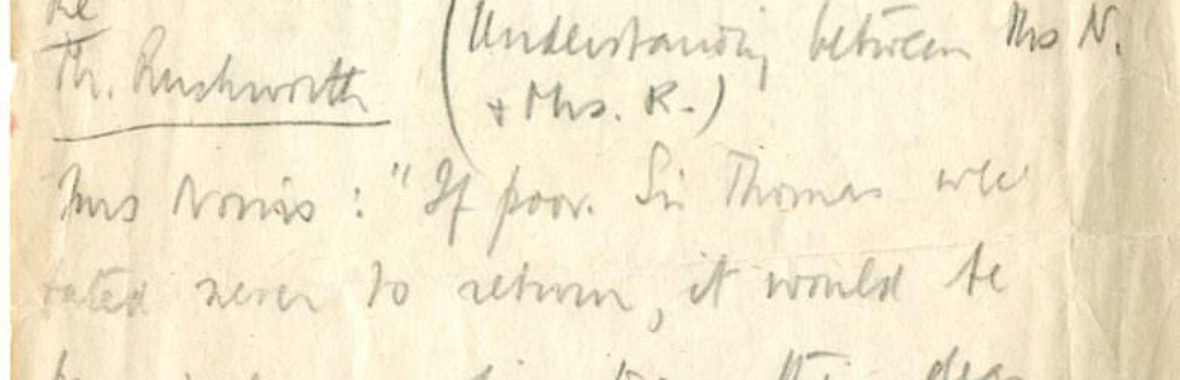 Re (Understanding between Mrs N.
Mr. Rushworth + Mrs. R.)
Mrs Norris : "If poor. Sir Thomas were
fated never to return, it would be